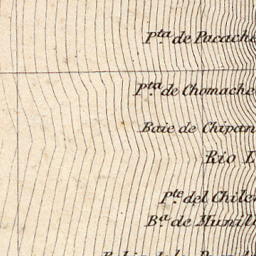 Pta de Pacache
Pta de Chomache
Baie de Chipan
Rio
Pte del Chile
Ba de